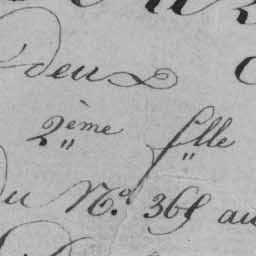 deux
2ème flle
Du N.º 365 au